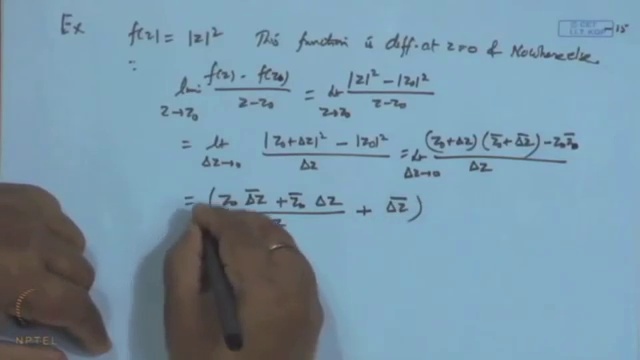 Ex f(z) = |z|² This function is diff. at z=0 & Nowhere else.
∵ lim_{z→z₀} (f(z) - f(z₀))/(z - z₀) = lt_{z→z₀} (|z|² - |z₀|²)/(z - z₀)
= lt_{Δz→0} (|z₀+Δz|² - |z₀|²)/Δz = lt_{Δz→0} ((z₀+Δz)(z̄₀+Δ̄z̄) - z₀z̄₀)/Δz
= ( (z₀ Δ̄z̄ + z̄₀ Δz)/z + Δ̄z̄ )
NPTEL